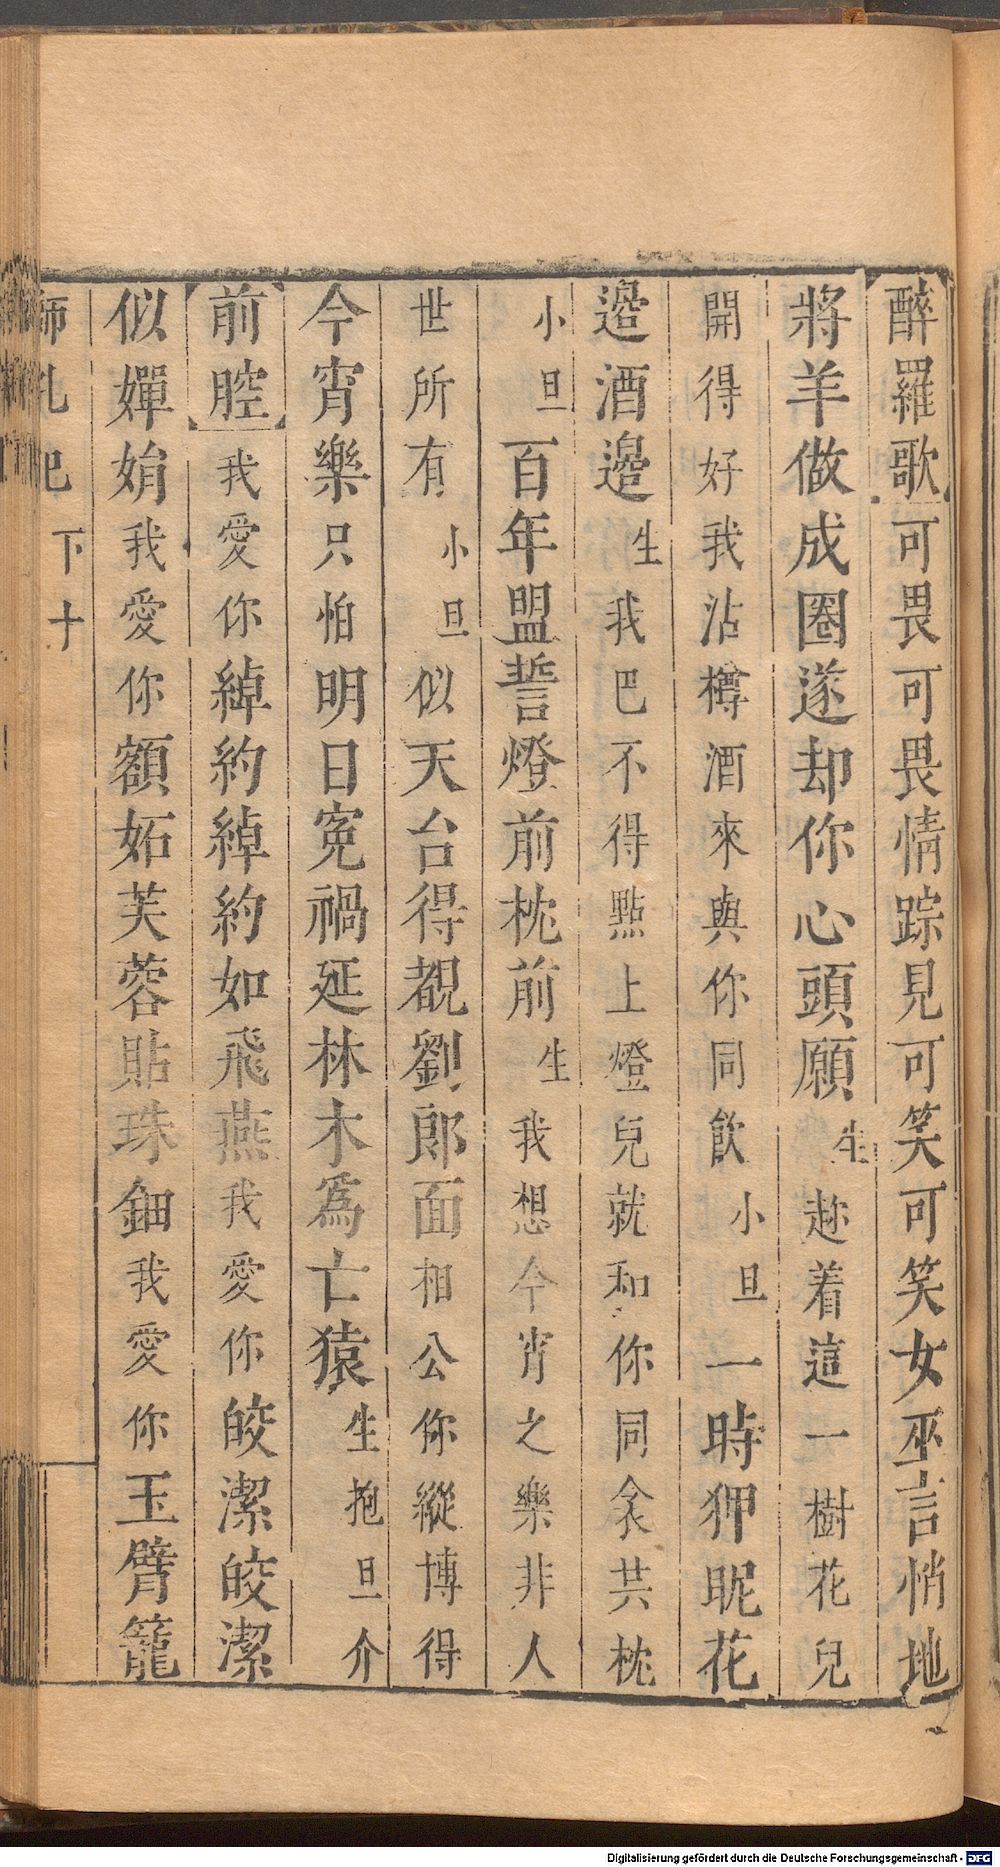 醉羅歌可畏可畏情踪見可笑可笑女巫言悄地
將羊做成圈遂却你心頭願生趂着這一樹花兒
開得好我沽樽酒來與你同飲小旦一時狎昵花
邉酒邉生我巴不得點上燈兒就和你同衾共枕
小旦百年盟誓燈前枕前生我想今宵之樂非人
世所有小旦似天台得覩劉郎面相公你縱博得
今宵樂只怕明日寃禍延林木爲亡猿生抱旦介
前腔我愛你綽約綽約如飛燕我愛你皎潔皎潔
似嬋娟我愛你額妬芙蓉貼珠鈿我愛你玉臂籠
下十
Digitalisierung gefördert durch die Deutsche Forschungsgemeinschaft - DFG